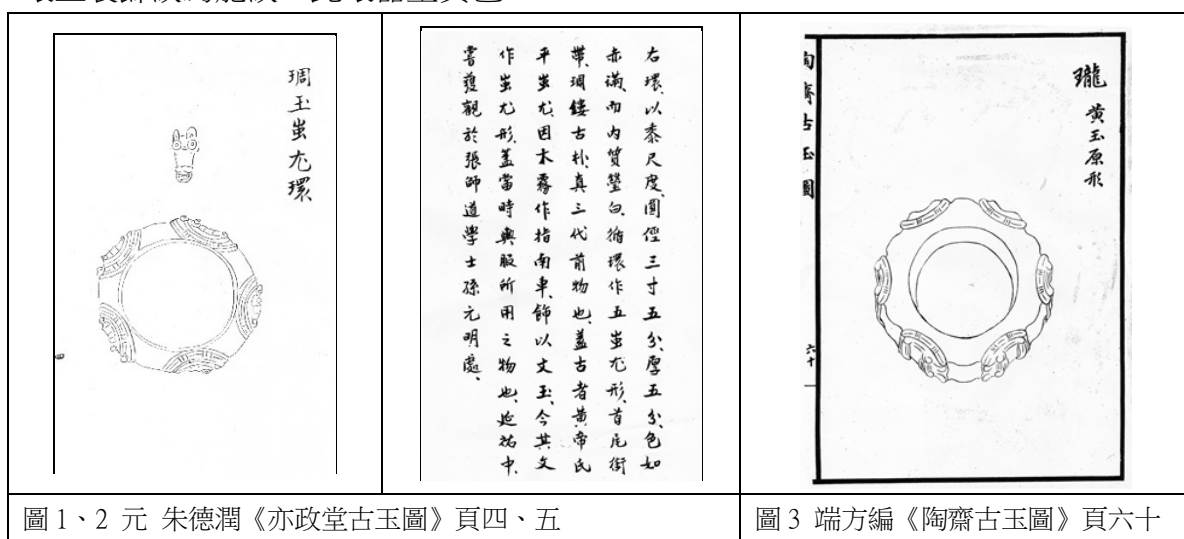 琱玉蚩尤環
右環、以黍尺度、圓徑三寸五分、厚五分、色如
赤璊、而內質瑩白、循環作五蚩尤形、首尾銜
帶、琱鏤古朴、真三代前物也、蓋古者黃帝氏
平蚩尤、因大霧作指南車、飾以文玉、今其文
作蚩尤形、蓋當時輿服所用之物也、延祐中、
嘗獲觀於張師道學士孫元明處、
瓏 黃玉原形
陶齋古玉圖
六十
圖 1、2 元 朱德潤《亦政堂古玉圖》頁四、五
圖 3 端方編《陶齋古玉圖》頁六十